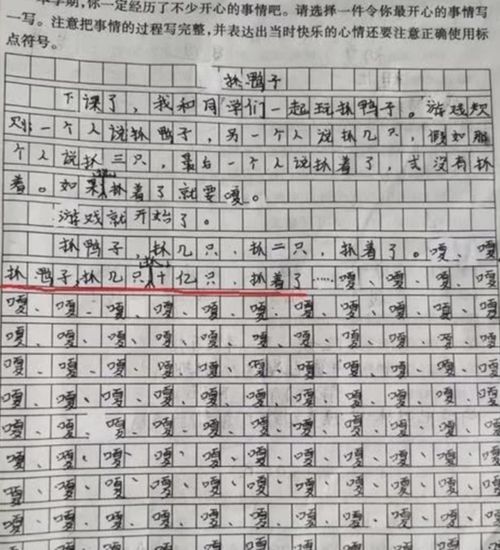 本学期,你一定经历了不少开心的事情吧。请选择一件令你最开心的事情写
一写。注意把事情的过程写完整,并表达出当时快乐的心情还要注意正确使用标
点符号。
抓鸭子
下课了，我和同学们一起玩抓鸭子。游戏规
则:一个人说抓鸭子，另一个人说抓几只，假如那
个人说抓三只，最后一个人说抓着了，或没有抓
着。如果抓着了就要嘎。
游戏就开始了。
抓鸭子，抓几只，抓二只，抓着了。嘎、嘎、
抓鸭子，抓几只，抓十亿只，抓着了……嘎、嘎、嘎、嘎、
嘎、嘎、嘎、嘎、嘎、嘎、嘎、嘎、嘎、嘎、
嘎、嘎、嘎、嘎、嘎、嘎、嘎、嘎、嘎、嘎、
嘎、嘎、嘎、嘎、嘎、嘎、嘎、嘎、嘎、嘎、
嘎、嘎、嘎、嘎、嘎、嘎、嘎、嘎、嘎、嘎、
嘎、嘎、嘎、嘎、嘎、嘎、嘎、嘎、嘎、嘎、
嘎、嘎、嘎、嘎、嘎、嘎、嘎、嘎、嘎、嘎、
嘎、嘎、嘎、嘎、嘎、嘎、嘎、嘎、嘎、嘎、
嘎、嘎、嘎、嘎、嘎、嘎、嘎、嘎、嘎、嘎、
嘎、嘎、嘎、嘎、嘎、嘎、嘎、嘎、嘎、嘎、